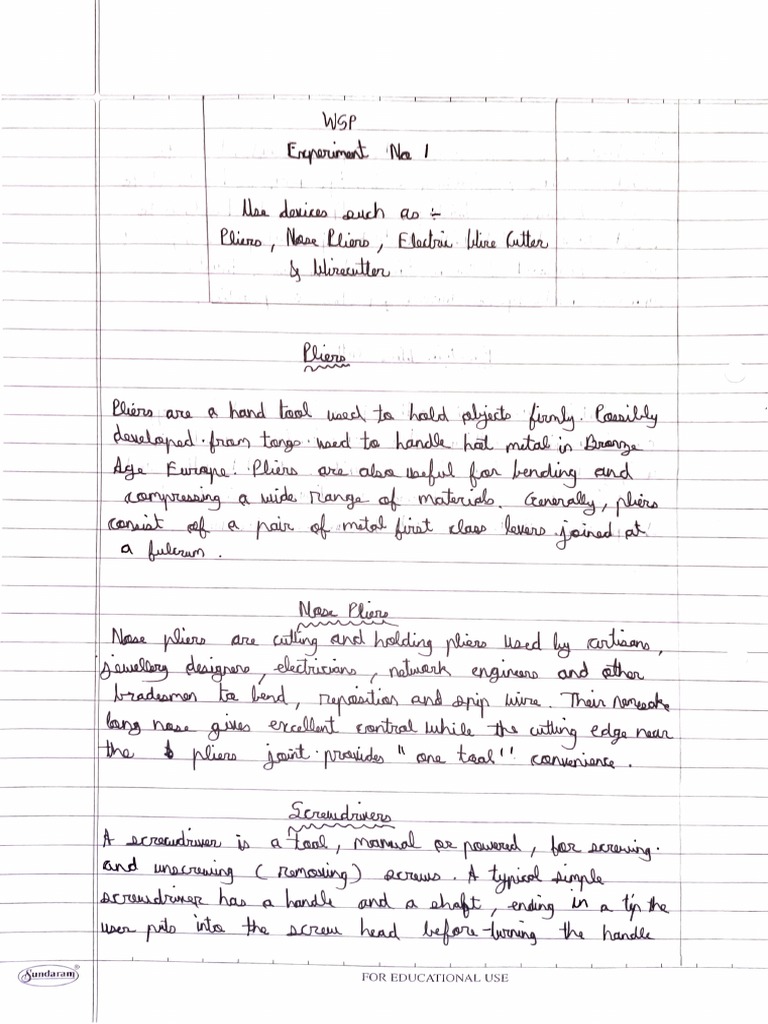 WSP
Experiment No 1
Use devices such as :-
Pliers, Nose Pliers, Electric Wire Cutter
& Wirecutter.
Pliers
Pliers are a hand tool used to hold objects firmly. Possibly
developed from tongs used to handle hot metal in Bronze
Age Europe. Pliers are also useful for bending and
compressing a wide range of materials. Generally, pliers
consist of a pair of metal first class levers joined at
a fulcrum.
Nose Pliers
Nose pliers are cutting and holding pliers used by artisans,
jewellery designers, electricians, network engineers and other
tradesmen to bend, reposition and snip wire. Their
long nose gives excellent control while the cutting edge near
the pliers joint provides "one tool" convenience.
Screwdrivers
A screwdriver is a tool, manual or powered, for screwing
and unscrewing (removing) screws. A typical simple
screwdriver has a handle and a shaft, ending in a tip the
user puts into the screw head before turning the handle
Sundaram®
FOR EDUCATIONAL USE